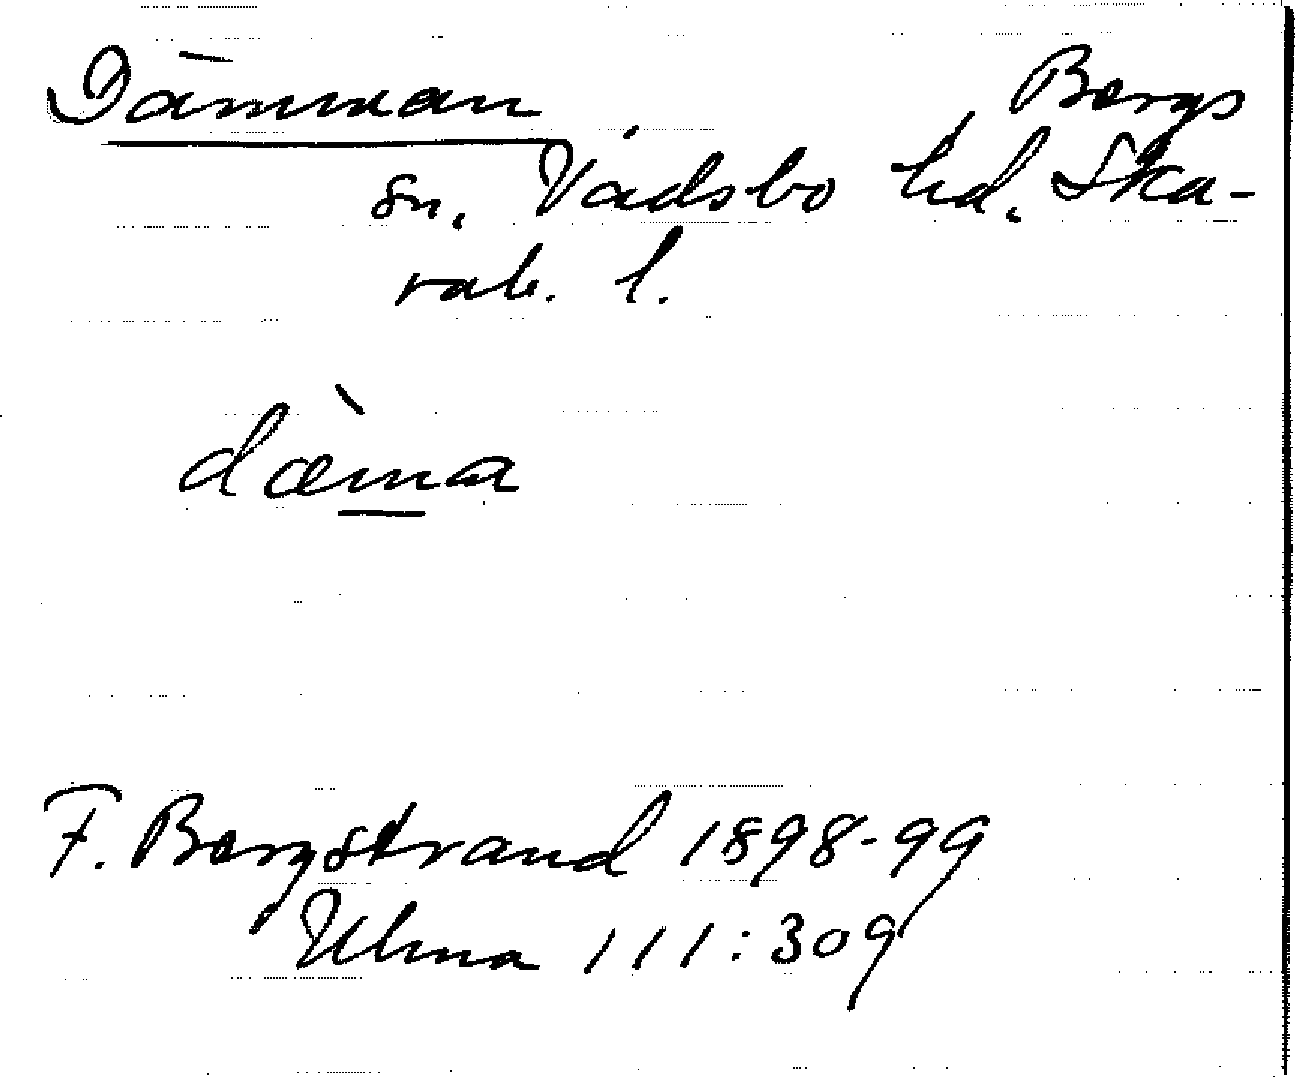 Dämman Bergs
sn. Vadsbo hd. Ska-
rab. l.
dæ̀ma
F. Bergstrand 1898-99
Ulma 111:309